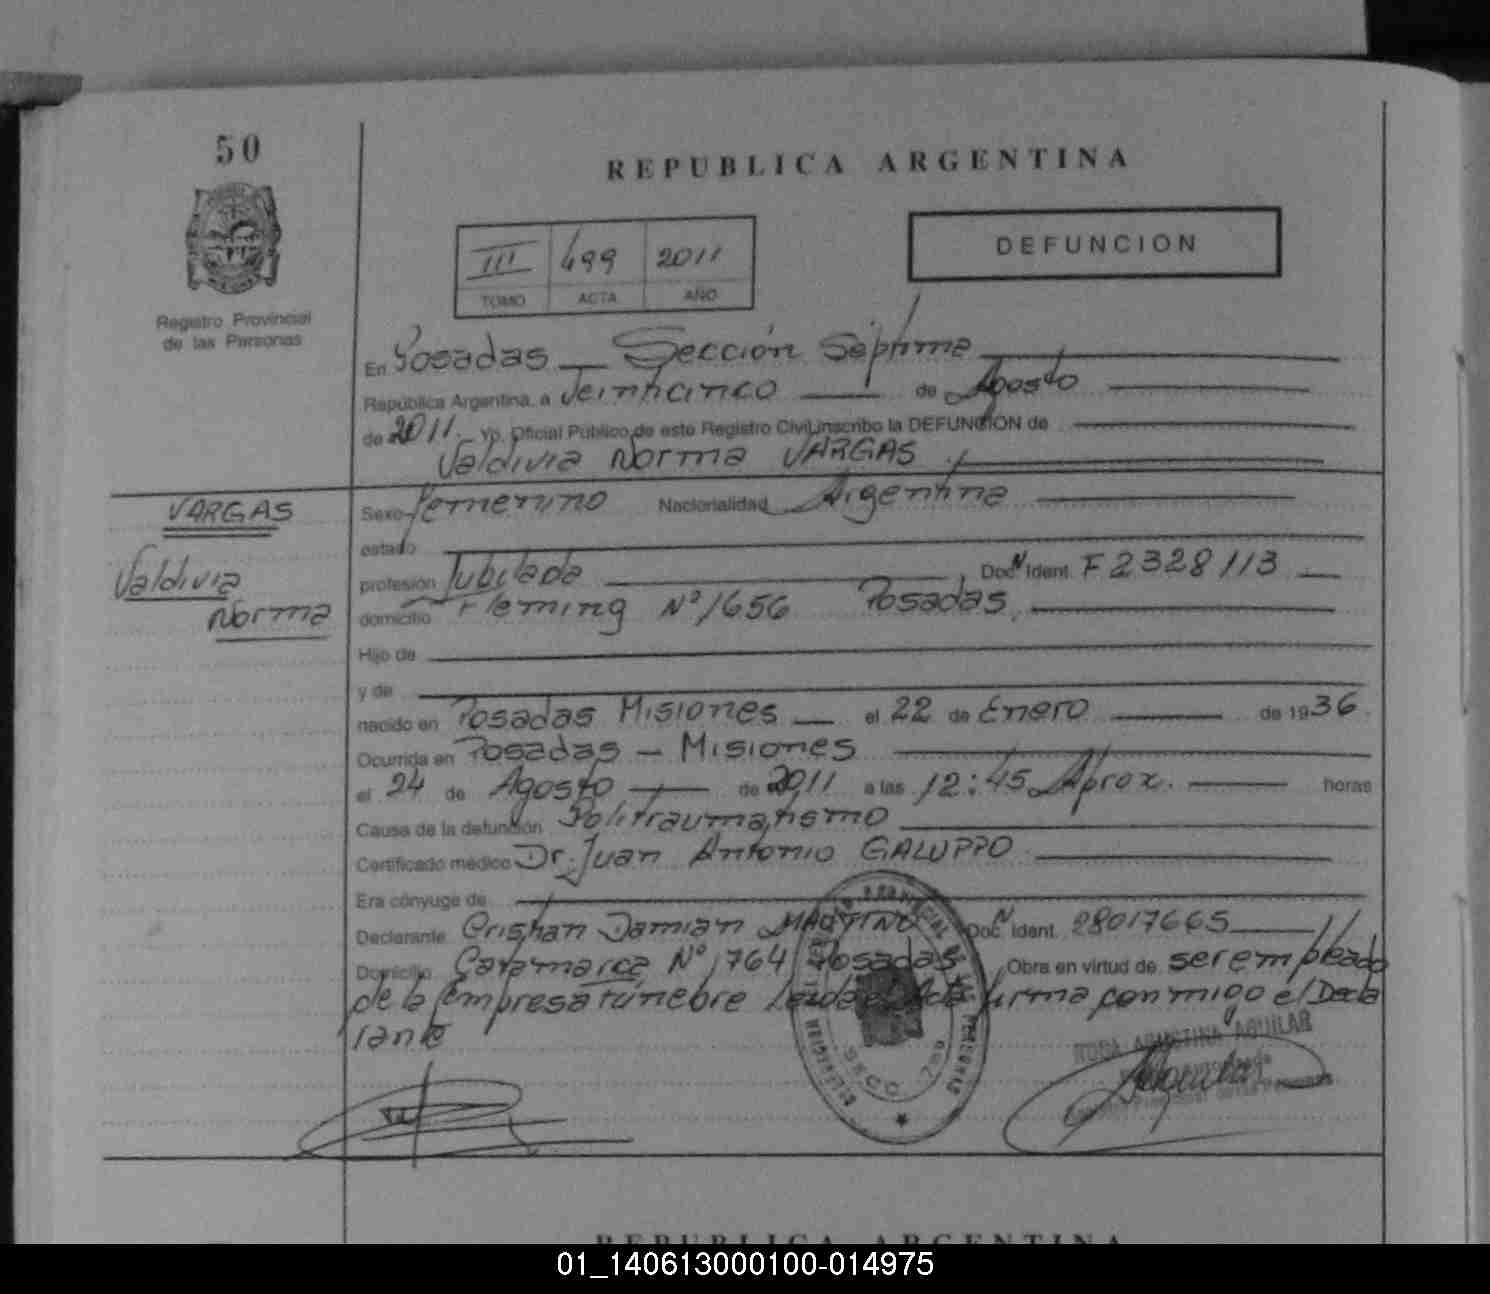 50
REPUBLICA ARGENTINA
Registro Provincial
de las Personas
III 499 2011
TOMO ACTA AÑO
DEFUNCION
En Posadas — Sección Séptima
República Argentina, a Veinticinco de Agosto
de 2011. Yo, Oficial Público de este Registro Civil, inscribo la DEFUNCION de
Valdivia Norma VARGAS
VARGAS
Valdivia
Norma
Sexo Femenino Nacionalidad Argentina
estado
profesión Jubilada Doc. N Ident. F 2328113
domicilio Fleming Nº 1656 Posadas
Hijo de
y de
nacido en Posadas Misiones el 22 de Enero de 1936
Ocurrida en Posadas - Misiones
el 24 de Agosto de 2011 a las 12:45 Aprox. horas
Causa de la defunción Politraumatismo
Certificado médico Dr. Juan Antonio GALUPPO
Era cónyuge de
Declarante Cristian Damian MARTINO Doc. N Ident. 28017665
Domicilio Catamarca Nº 764 Posadas Obra en virtud de ser empleado
de la Empresa fúnebre Leida el Acta firma conmigo el Decla
rante
SECC. 7ma
ROSA AGUSTINA AGUILAR
REPUBLICA ARGENTINA
01_140613000100-014975